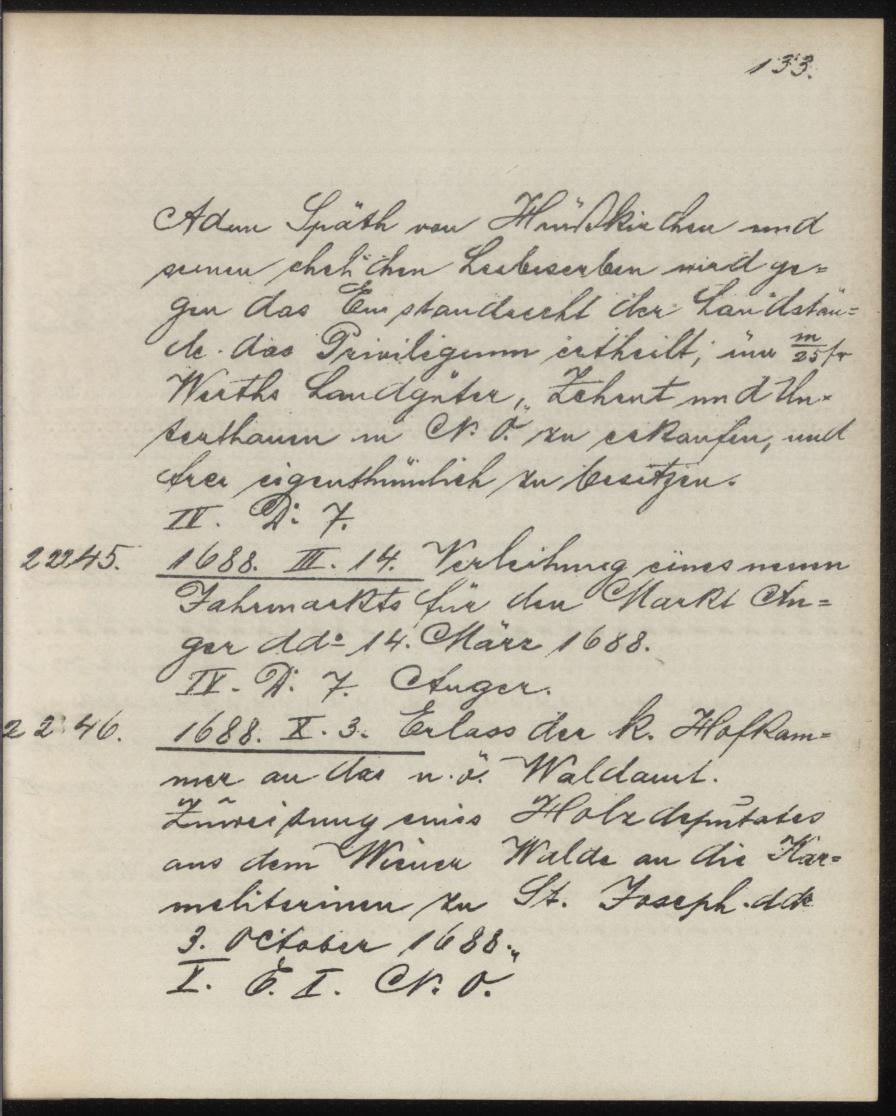 133.
Adam Späth von Hürßkirchen und
seinen ehelichen Leibeserben wird ge=
gen das Einstandrecht der Landstän=
de das Priviligium ertheilt, um m/25 fr
Werths Landgüter, Zehent und Un=
terthanen in N. Ö. zu erkaufen, und
frei eigenthümlich zu besitzen.
IV. D: 7.
22245. 1688. III. 14. Verleihung eines neuen
Jahrmarkts für den Markt An=
ger ddo 14. März 1688.
IV. D: 7. Anger.
22246. 1688. X. 3. Erlass der k. Hofkam=
mer an das n. ö. Waldamt.
Zuweisung eines Holzdeputates
aus dem Wiener Walde an die Kar=
meliterinen zu St. Joseph. ddo
3. October 1688.
I. E. I. N. Ö.